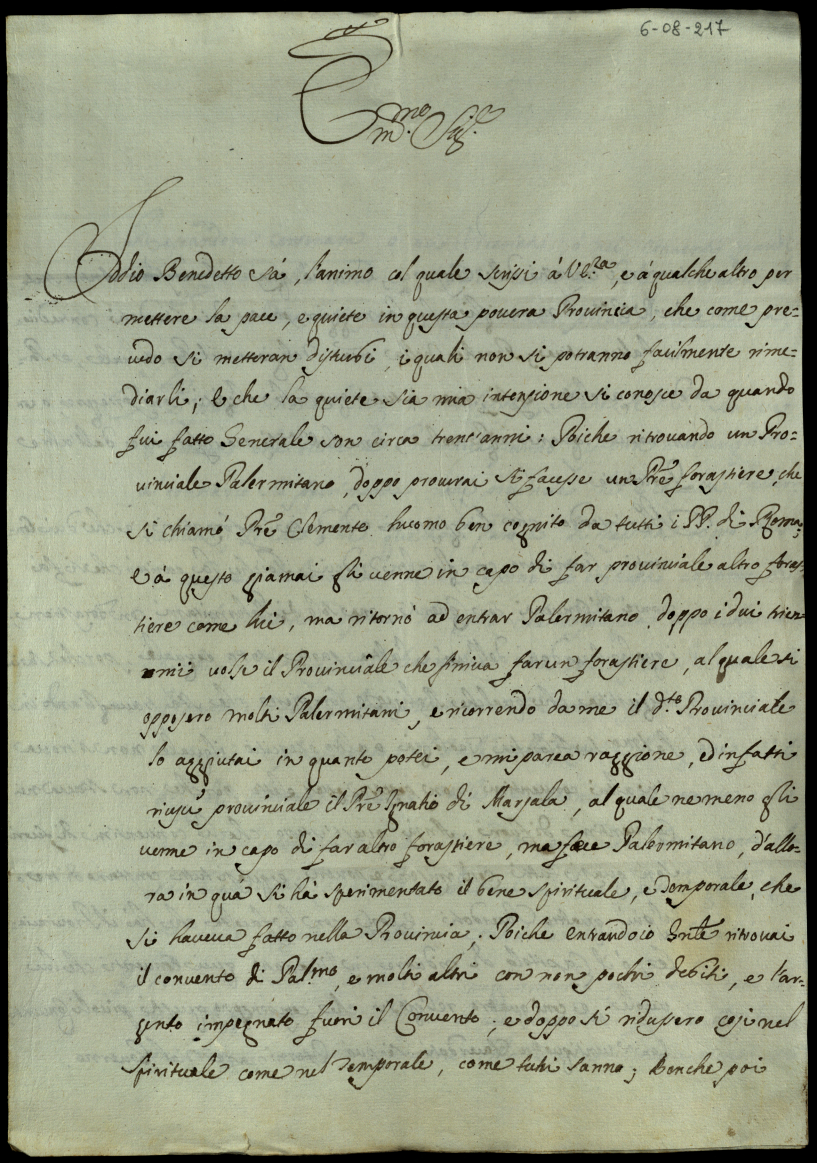 6-08-217
Em.mo Sig.r
Iddio Benedetto sà, l'animo col quale scrissi á V.E.za, e á qualche altro per
mettere la pace, e quiete in questa povera Provincia, che come pre=
vedo si metteran disturbi, i quali non si potranno facilmente rime=
diarli; E che la quiete sia mia intensione si conosce da quando
fui fatto Generale son circa trent'anni: Poiche ritrovando un Pro=
vinciale Palermitano, doppo procurai si facesse un Prê forastiere, che
si chiamó Prê Clemente huomo ben cognito da tutti i PP. di Roma;
E á questo giamai gli venne in capo di far provinciale altro foras=
tiere come lui, ma ritornó ad entrar Palermitano, doppo i dui trien=
nii volse il Provinciale che finiva far un forastiere, al quale si
opposero molti Palermitani, e ricorrendo da me il d.to Provinciale
lo aggiutai in quanto potei, e mi parea raggione, ed in fatti
riuscì provinciale il Prê Ignatio di Marsala, al quale ne meno gli
venne in capo di far altro forastiere, ma fece Palermitano, d'allo=
ra in quá si há sperimentato il bene spirituale, e temporale, che
si haveva fatto nella Provincia; Poiche entrando io Gnĺe ritrovai
il convento di Pal.mo, e molti altri con non pochi debiti, e l'ar=
gento impegnato fuori il Convento; e doppo si ridussero cosi nel
spirituale come nel temporale, come tutti sanno; Benche poi